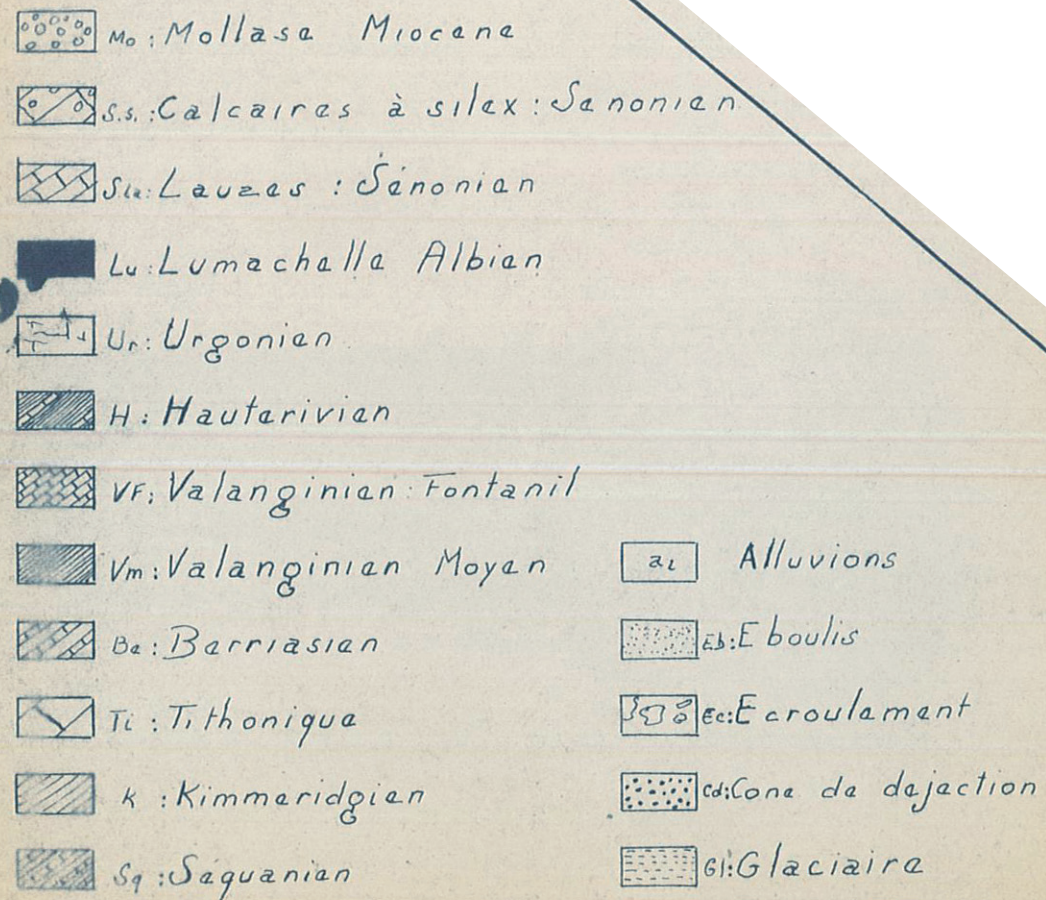 Mo : Mollase Miocene
S.s. : Calcaires à silex : Senonien
Sla : Lauzes : Sénonien
Lu : Lumachelle Albien
Ur : Urgonien
H : Hauterivien
VF : Valanginien : Fontanil
Vm : Valanginien Moyen
Be : Berriasien
Ti : Tithonique
K : Kimmeridgien
Sq : Sequanien
al Alluvions
Eb : Eboulis
Ec : Ecroulement
Cd : Cone de dejection
Gl : Glaciaire